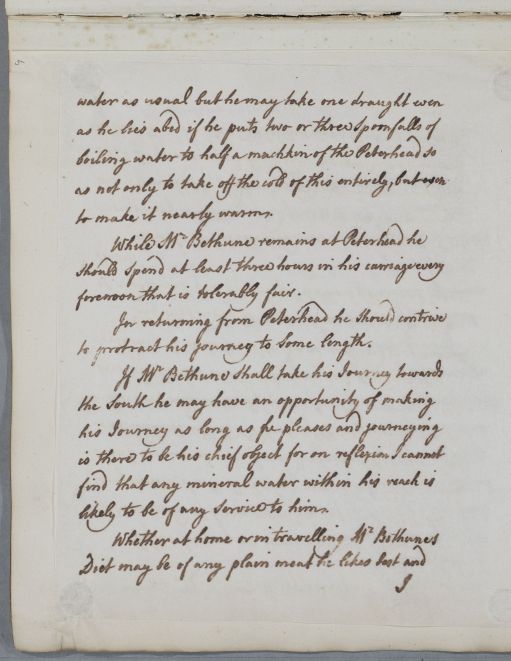 5
water as usual but he may take one draught even
as he lies abed if he puts two or three spoonfulls of
boiling water to half a muchkin of the Peterhead so
as not only to take off the cold of this entirely, but even
to make it nearly warm.
While Mr Bethune remains at Peterhead he
should spend at least three hours in his carriage every
forenoon that is tolerably fair.
In returning from Peterhead he should contrive
to protract his journey to some length.
If Mr Bethune shall take his Journey towards
the South he may have an opportunity of making
his Journey as long as he pleases and journeying
is there to be his chief object for on reflexion I cannot
find that any mineral water within his reach is
likely to be of any service to him.
Whether at home or in travelling Mr Bethunes
Diet may be of any plain meat he likes best and
I